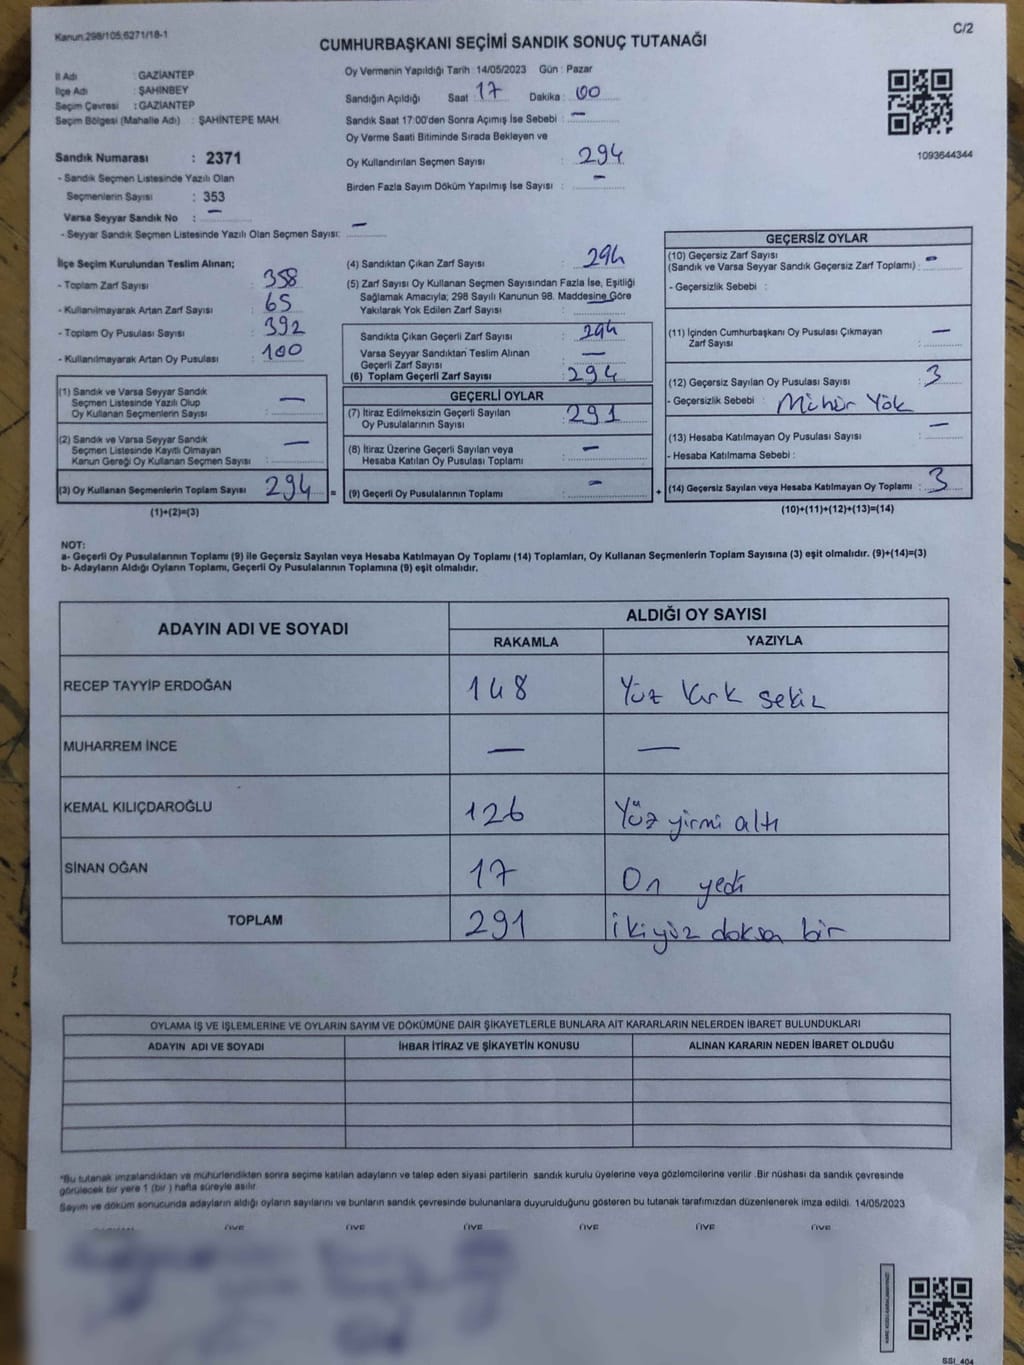 Kanun:298/105;6271/18-1
C/2
CUMHURBAŞKANI SEÇİMİ SANDIK SONUÇ TUTANAĞI
İl Adı : GAZİANTEP
İlçe Adı : ŞAHİNBEY
Seçim Çevresi : GAZİANTEP
Seçim Bölgesi (Mahalle Adı) : ŞAHİNTEPE MAH
Sandık Numarası : 2371
- Sandık Seçmen Listesinde Yazılı Olan
Seçmenlerin Sayısı : 353
Varsa Seyyar Sandık No : —
- Seyyar Sandık Seçmen Listesinde Yazılı Olan Seçmen Sayısı: —
Oy Vermenin Yapıldığı Tarih : 14/05/2023 Gün : Pazar
Sandığın Açıldığı Saat 17 Dakika 00
Sandık Saat 17:00'den Sonra Açımış İse Sebebi : —
Oy Verme Saati Bitiminde Sırada Bekleyen ve
Oy Kullandırılan Seçmen Sayısı : 294
Birden Fazla Sayım Döküm Yapılmış İse Sayısı : —
1093644344
İlçe Seçim Kurulundan Teslim Alınan;
- Toplam Zarf Sayısı : 358
- Kullanılmayarak Artan Zarf Sayısı : 65
- Toplam Oy Pusulası Sayısı : 392
- Kullanılmayarak Artan Oy Pusulası : 100
(1) Sandık ve Varsa Seyyar Sandık
Seçmen Listesinde Yazılı Olup
Oy Kullanan Seçmenlerin Sayısı : —
(2) Sandık ve Varsa Seyyar Sandık
Seçmen Listesinde Kayıtlı Olmayan
Kanun Gereği Oy Kullanan Seçmen Sayısı : —
(3) Oy Kullanan Seçmenlerin Toplam Sayısı : 294
(1)+(2)=(3)
(4) Sandıktan Çıkan Zarf Sayısı : 294
(5) Zarf Sayısı Oy Kullanan Seçmen Sayısından Fazla İse, Eşitliği
Sağlamak Amacıyla; 298 Sayılı Kanunun 98. Maddesine Göre
Yakılarak Yok Edilen Zarf Sayısı : —
Sandıkta Çıkan Geçerli Zarf Sayısı : 294
Varsa Seyyar Sandıktan Teslim Alınan
Geçerli Zarf Sayısı : —
(6) Toplam Geçerli Zarf Sayısı : 294
GEÇERLİ OYLAR
(7) İtiraz Edilmeksizin Geçerli Sayılan
Oy Pusulalarının Sayısı : 291
(8) İtiraz Üzerine Geçerli Sayılan veya
Hesaba Katılan Oy Pusulası Toplamı : —
= (9) Geçerli Oy Pusulalarının Toplamı : —
GEÇERSİZ OYLAR
(10) Geçersiz Zarf Sayısı
(Sandık ve Varsa Seyyar Sandık Geçersiz Zarf Toplamı) : —
- Geçersizlik Sebebi :
(11) İçinden Cumhurbaşkanı Oy Pusulası Çıkmayan
Zarf Sayısı : —
(12) Geçersiz Sayılan Oy Pusulası Sayısı : 3
- Geçersizlik Sebebi : Mühür Yok
(13) Hesaba Katılmayan Oy Pusulası Sayısı : —
- Hesaba Katılmama Sebebi :
+ (14) Geçersiz Sayılan veya Hesaba Katılmayan Oy Toplamı : 3
(10)+(11)+(12)+(13)=(14)
NOT:
a- Geçerli Oy Pusulalarının Toplamı (9) ile Geçersiz Sayılan veya Hesaba Katılmayan Oy Toplamı (14) Toplamları, Oy Kullanan Seçmenlerin Toplam Sayısına (3) eşit olmalıdır. (9)+(14)=(3)
b- Adayların Aldığı Oyların Toplamı, Geçerli Oy Pusulalarının Toplamına (9) eşit olmalıdır.
ADAYIN ADI VE SOYADI ALDIĞI OY SAYISI
RAKAMLA YAZIYLA
RECEP TAYYİP ERDOĞAN 148 Yüz kırk sekiz
MUHARREM İNCE — —
KEMAL KILIÇDAROĞLU 126 Yüz yirmi altı
SİNAN OĞAN 17 On yedi
TOPLAM 291 ikiyüz doksa bir
OYLAMA İŞ VE İŞLEMLERİNE VE OYLARIN SAYIM VE DÖKÜMÜNE DAİR ŞİKAYETLERLE BUNLARA AİT KARARLARIN NELERDEN İBARET BULUNDUKLARI
ADAYIN ADI VE SOYADI İHBAR İTİRAZ VE ŞİKAYETİN KONUSU ALINAN KARARIN NEDEN İBARET OLDUĞU
*Bu tutanak imzalandıktan ve mühürlendikten sonra seçime katılan adayların ve talep eden siyasi partilerin sandık kurulu üyelerine veya gözlemcilerine verilir. Bir nüshası da sandık çevresinde
görülecek bir yere 1 (bir ) hafta süreyle asılır.
Sayım ve döküm sonucunda adayların aldığı oyların sayılarını ve bunların sandık çevresinde bulunanlara duyurulduğunu gösteren bu tutanak tarafımızdan düzenlenerek imza edildi. 14/05/2023
ÜYE ÜYE ÜYE ÜYE ÜYE ÜYE
SSI_404